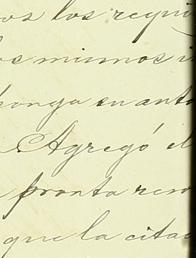 os los requi
os mismos i
ponga su anto
Agregó el
pronta reso
que la citad